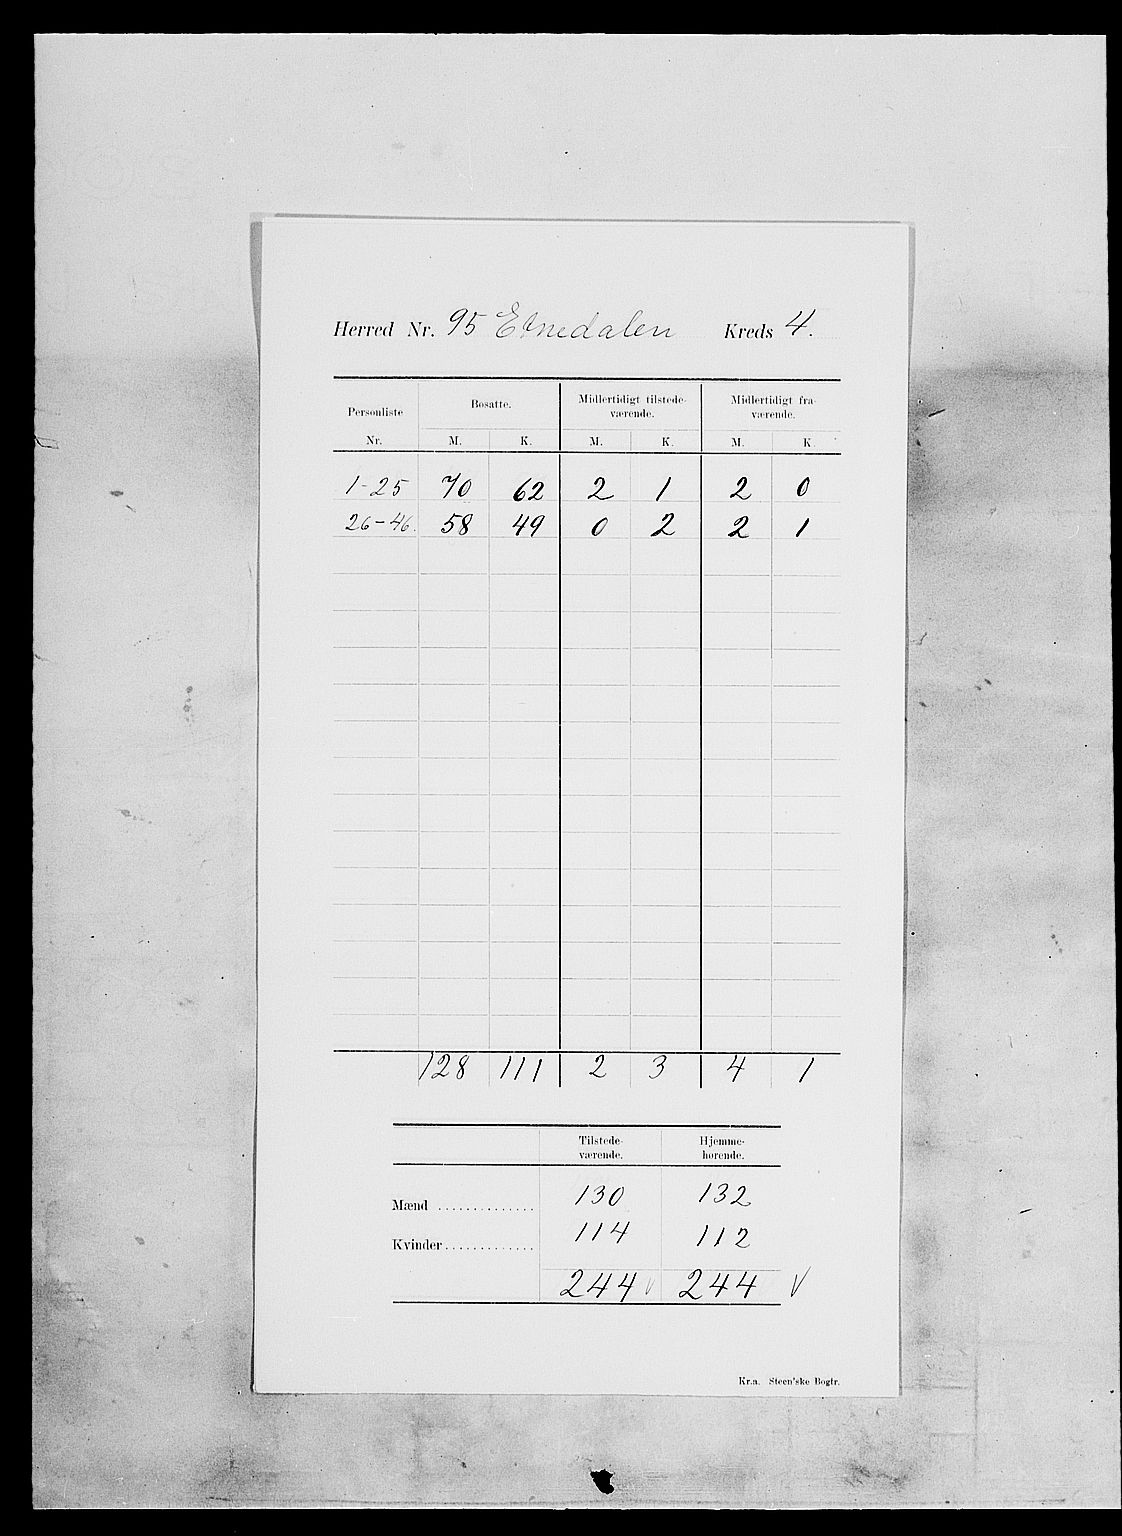 Herred Nr. 95 Etnedalen Kreds 4.
Personliste Nr. Bosatte. Midlertidigt tilstede-værende. Midlertidigt fra-værende.
M. K. M. K. M. K.
1-25 70 62 2 1 2 0
26-46. 58 49 0 2 2 1
128 111 2 3 4 1
Tilstede-værende. Hjemme-hørende.
Mænd .............. 130 132
Kvinder ............. 114 112
244 V 244 V
Kr.a. Steen'ske Bogtr.